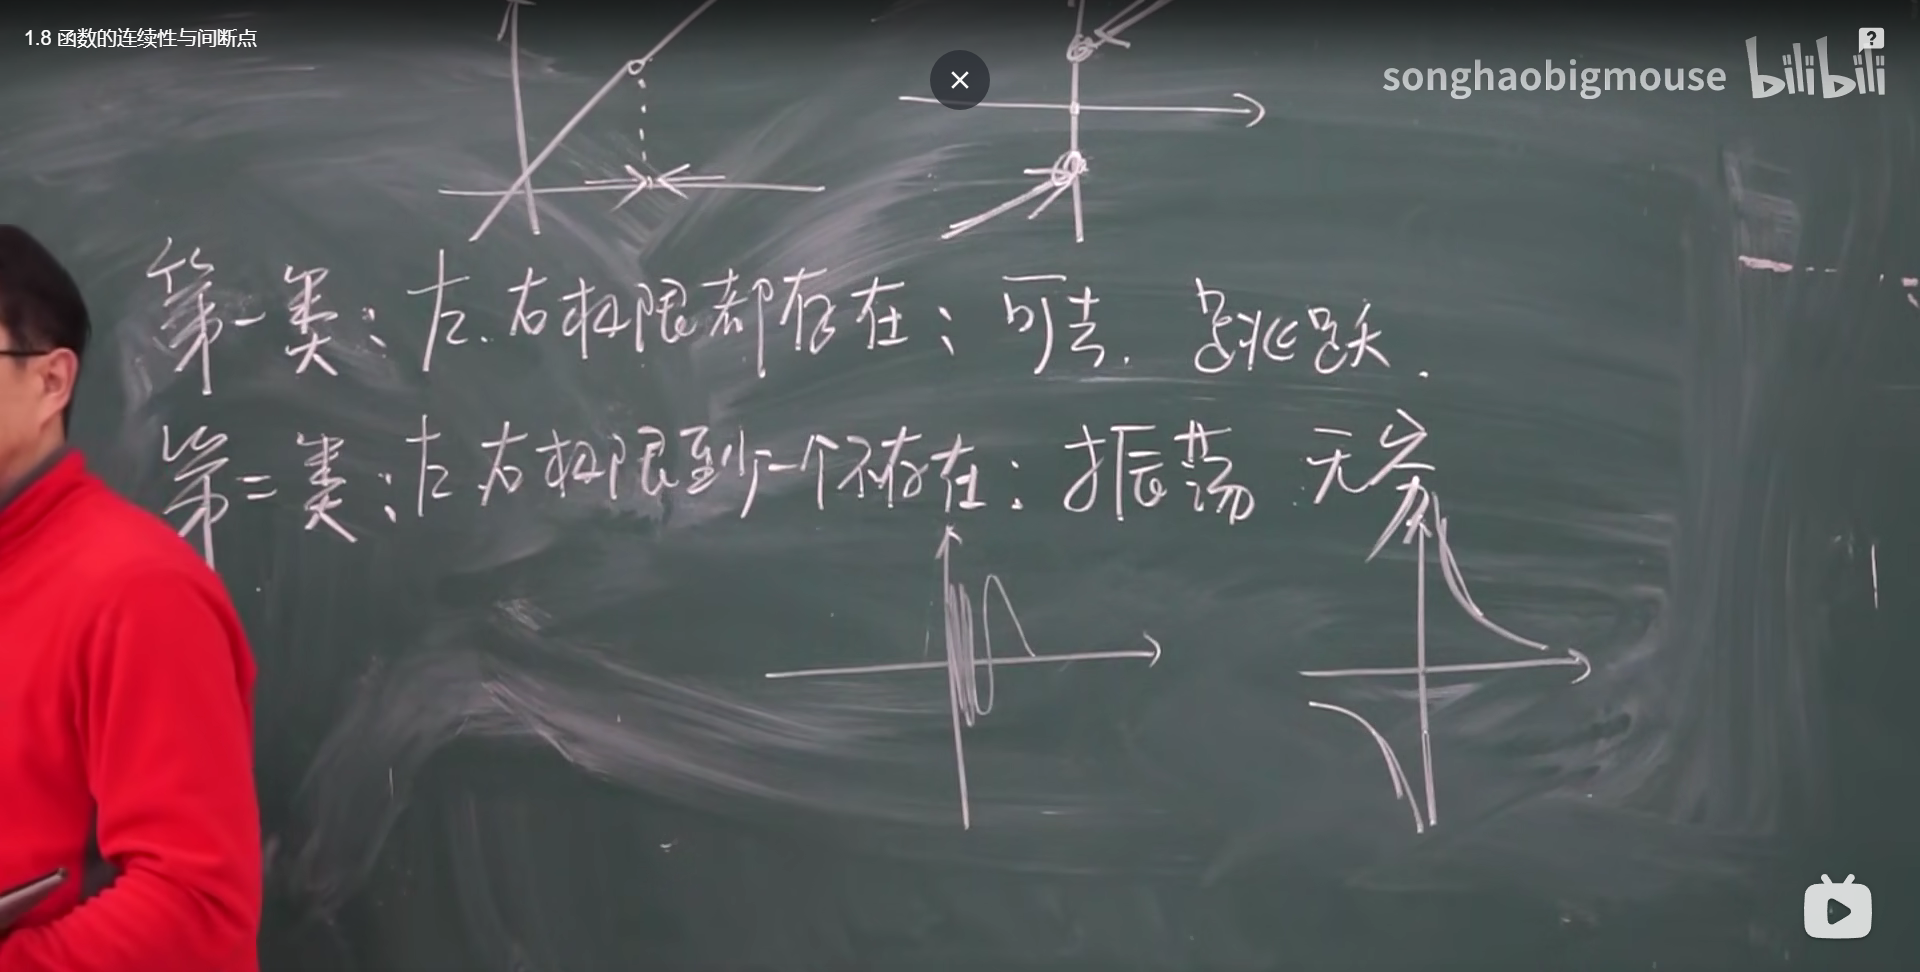 1.8 函数的连续性与间断点
songhaobigmouse bilibili
第一类：左.右极限都存在；可去.跳跃.
第二类：左右极限至少一个不存在：振荡 无穷